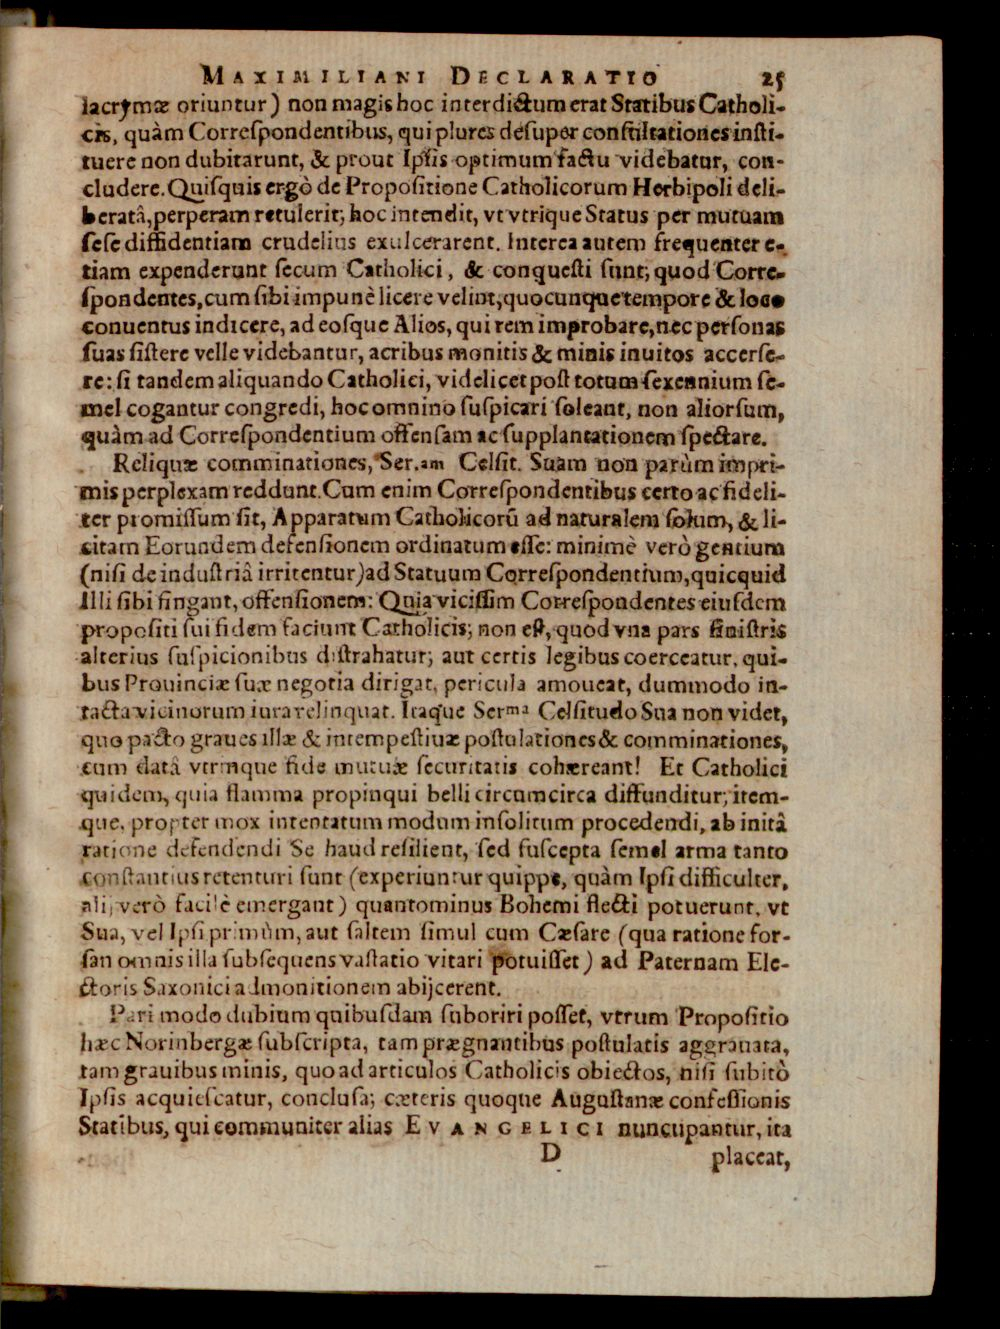 MAXIMILIANI DECLARATIO 25
lacrymæ oriuntur) non magis hoc interdictum erat Statibus Catholi-
cis, quàm Correſpondentibus, qui plures deſuper conſultationes inſti-
tuere non dubitarunt, & prout Ipſis optimum factu videbatur, con-
cludere. Quiſquis ergò de Propoſitione Catholicorum Herbipoli deli-
beratâ, perperam retulerit; hoc intendit, vt vtrique Status per mutuam
ſeſe diffidentiam crudelius exulcerarent. Interea autem frequenter e-
tiam expenderunt ſecum Catholici, & conqueſti ſunt; quod Corre-
ſpondentes, cum ſibi impunè licere velint, quocunque tempore & loco
conuentus indicere, ad eoſque Alios, qui rem improbare, nec perſonas
ſuas ſiſtere velle videbantur, acribus monitis & minis inuitos accerſe-
re: ſi tandem aliquando Catholici, videlicet poſt totum ſexennium ſe-
mel cogantur congredi, hoc omnino ſuſpicari ſoleant, non aliorſum,
quàm ad Correſpondentium offenſam ac ſupplantationem ſpectare.
Reliquæ comminationes, Ser.am Celſit. Suam non parùm impri-
mis perplexam reddunt. Cum enim Correſpondentibus certo ac fideli-
ter promiſſum ſit, Apparatum Catholicorū ad naturalem ſolum, & li-
citam Eorundem defenſionem ordinatum eſſe: minimè verò gentium
(niſi de induſtriâ irritentur) ad Statuum Correſpondentium, quicquid
Illi ſibi fingant, offenſionem: Quia viciſſim Correſpondentes eiuſdem
propoſiti ſui fidem faciunt Catholicis; non eſt, quod vna pars ſiniſtris
alterius ſuſpicionibus diſtrahatur; aut certis legibus coerceatur, qui-
bus Prouinciæ ſuæ negotia dirigat, pericula amoueat, dummodo in-
tacta vicinorum iura relinquat. Itaque Serma Celſitudo Sua non videt,
quo pacto graues illæ & intempeſtiuæ poſtulationes & comminationes,
cum datâ vtrinque fide mutuæ ſecuritatis cohæreant! Et Catholici
quidem, quia flamma propinqui belli circumcirca diffunditur; item-
que, propter mox intentatum modum inſolitum procedendi, ab initâ
ratione defendendi Se haud reſilient, ſed ſuſcepta ſemel arma tanto
conſtantius retenturi ſunt (experiuntur quippe, quàm Ipſi difficulter,
alij verò facilè emergant) quantominus Bohemi flecti potuerunt, vt
Sua, vel Ipſi primùm, aut ſaltem ſimul cum Cæſare (qua ratione for-
ſan omnis illa ſubſequens vaſtatio vitari potuiſſet) ad Paternam Ele-
ctoris Saxonici admonitionem abijcerent.
Pari modo dubium quibuſdam ſuboriri poſſet, vtrum Propoſitio
hæc Norinbergæ ſubſcripta, tam prægnantibus poſtulatis aggrauata,
tam grauibus minis, quo ad articulos Catholicis obiectos, niſi ſubitò
Ipſis acquieſcatur, concluſa; cæteris quoque Auguſtanæ confeſſionis
Statibus, qui communiter alias EVANGELICI nuncupantur, ita
D placeat,